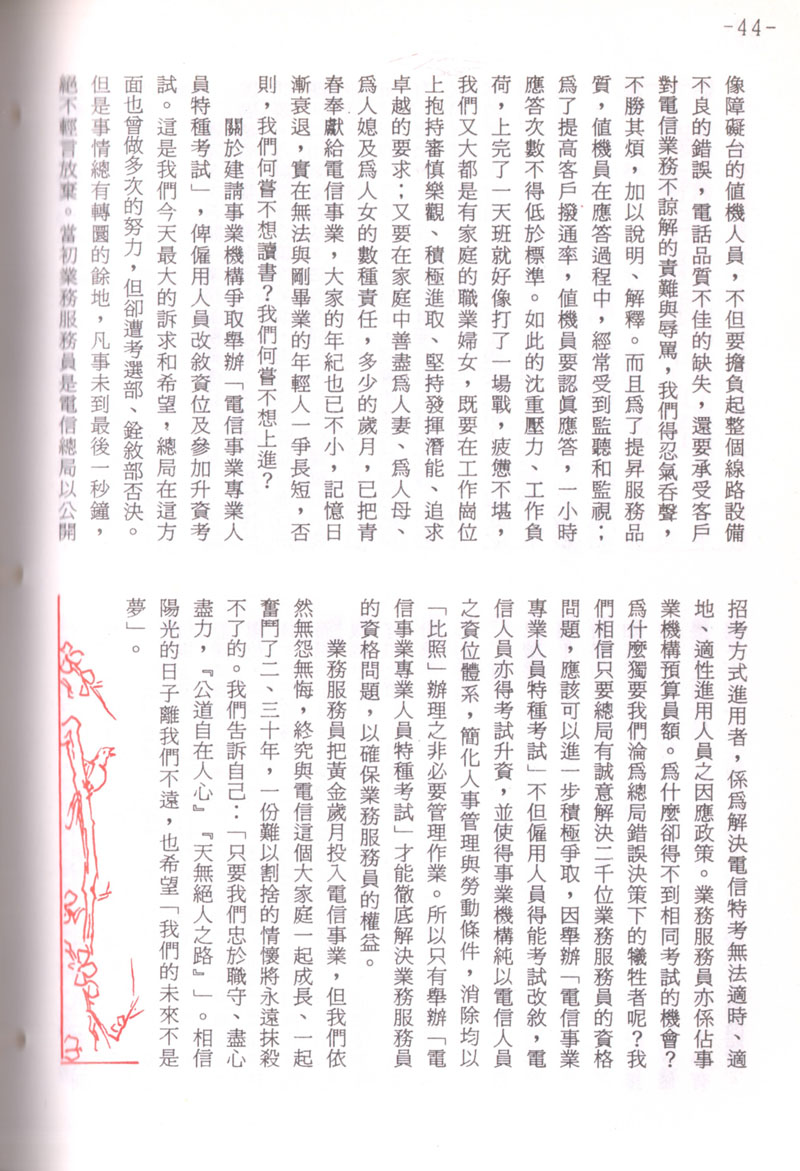 -44-
像障礙台的值機人員，不但要擔負起整個線路設備
不良的錯誤，電話品質不佳的缺失，還要承受客戶
對電信業務不諒解的責難與辱罵，我們得忍氣吞聲，
不勝其煩，加以說明、解釋。而且爲了提昇服務品
質，值機員在應答過程中，經常受到監聽和監視；
爲了提高客戶撥通率，值機員要認眞應答，一小時
應答次數不得低於標準。如此的沈重壓力、工作負
荷，上完了一天班就好像打了一場戰，疲憊不堪，
我們又大都是有家庭的職業婦女，既要在工作崗位
上抱持審慎樂觀、積極進取、堅持發揮潛能、追求
卓越的要求；又要在家庭中善盡爲人妻、爲人母、
爲人媳及爲人女的數種責任，多少的歲月，已把青
春奉獻給電信事業，大家的年紀也已不小，記憶日
漸衰退，實在無法與剛畢業的年輕人一爭長短，否
則，我們何嘗不想讀書？我們何嘗不想上進？
關於建請事業機構爭取舉辦「電信事業專業人
員特種考試」，俾僱用人員改敘資位及參加升資考
試。這是我們今天最大的訴求和希望，總局在這方
面也曾做多次的努力，但卻遭考選部、銓敘部否決。
但是事情總有轉圜的餘地，凡事未到最後一秒鐘，
絕不輕言放棄。當初業務服務員是電信總局以公開
招考方式進用者，係爲解決電信特考無法適時、適
地、適性進用人員之因應政策。業務服務員亦係佔事
業機構預算員額。爲什麼卻得不到相同考試的機會？
爲什麼獨要我們淪爲總局錯誤決策下的犧牲者呢？我
們相信只要總局有誠意解決二千位業務服務員的資格
問題，應該可以進一步積極爭取，因舉辦「電信事業
專業人員特種考試」不但僱用人員得能考試改敘，電
信人員亦得考試升資，並使得事業機構純以電信人員
之資位體系，簡化人事管理與勞動條件，消除均以
「比照」辦理之非必要管理作業。所以只有舉辦「電
信事業專業人員特種考試」才能徹底解決業務服務員
的資格問題，以確保業務服務員的權益。
業務服務員把黃金歲月投入電信事業，但我們依
然無怨無悔，終究與電信這個大家庭一起成長、一起
奮鬥了二、三十年，一份難以割捨的情懷將永遠抹殺
不了的。我們告訴自己：「只要我們忠於職守、盡心
盡力，『公道自在人心』『天無絕人之路』」。相信
陽光的日子離我們不遠，也希望「我們的未來不是
夢」。